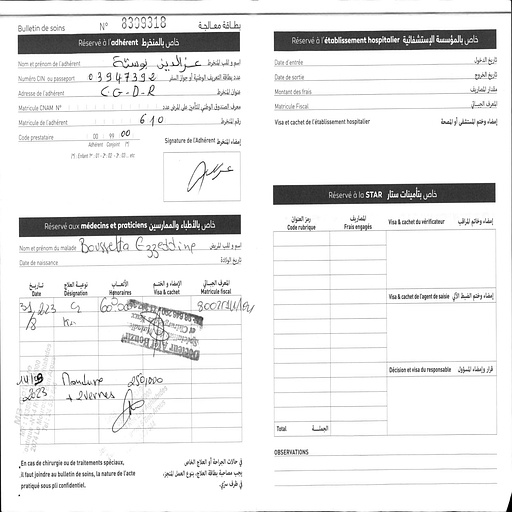 Bulletin de soins N° 8309318 بطاقة معالجة
Réservé à l'adhérent خاص بالمنخرط
Nom et prénom de l'adhérent عزالدين بوستة اسم و لقب المنخرط
Numéro CIN ou passeport 03947392 عدد بطاقة التعريف الوطنية أو جواز السفر
Adresse de l'adhérent CG-D-R عنوان المنخرط
Matricule CNAM N° معرف الصندوق الوطني للتأمين على المرض عدد
Matricule de l'adhérent 610 رقم المنخرط
Code prestataire 00 : 99 00
Adhérent Conjoint (*)
(*) : Enfant 1er : 01 - 2e : 02 - 3e : 03.... etc
Signature de l'Adhérent إمضاء المنخرط
Réservé aux médecins et praticiens خاص بالأطباء والممارسين
Nom et prénom du malade Boussetta Ezzeddine اسم و لقب المريض
Date de naissance تاريخ الولادة
تاريخ Date
نوعية العلاج Désignation
الأتعاب Honoraires
الإمضاء و الختم Visa & cachet
المعرف الجبائي Matricule fiscal
2023 C2 60,000
/8
14/ 2023 250,000
+ 2 vernes
En cas de chirurgie ou de traitements spéciaux,
il faut joindre au bulletin de soins, la nature de l'acte
pratiqué sous pli confidentiel.
في حالات الجراحة أو العلاج الخاص
يجب مصاحبة بطاقة العلاج، بنوع العمل المنجز،
في ظرف سري.
Réservé à l'établissement hospitalier خاص بالمؤسسة الإستشفائية
Date d'entrée تاريخ الدخول
Date de sortie تاريخ الخروج
Montant des frais مقدار المصاريف
Matricule Fiscal المعرف الجبائي
Visa et cachet de l'établissement hospitalier إمضاء وختم المستشفى أو المصحة
Réservé à la STAR خاص بتأمينات ستار
رمز العنوان Code rubrique
المصاريف Frais engagés
Visa & cachet du vérificateur إمضاء وخاتم المراقب
Visa & cachet de l'agent de saisie إمضاء وختم الضبط الآلي
Décision et visa du responsable قرار وإمضاء المسؤول
Total الجملة
OBSERVATIONS